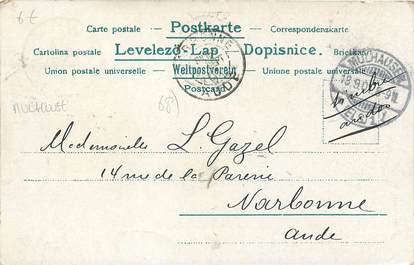 6€
Carte postale — Postkarte — Correspondenzkarte
Cartolina postale — Levelező-Lap. Dopisnice. — Briefkaart
Union postale universelle — Weltpostverein — Unione postale universale
Postcard
NARBONNE
AUDE
MÜLHAUSEN
18 9
MULHOUSE
68
Mademoiselle L. Gazel
14 rue de la Parerie
Narbonne
Aude